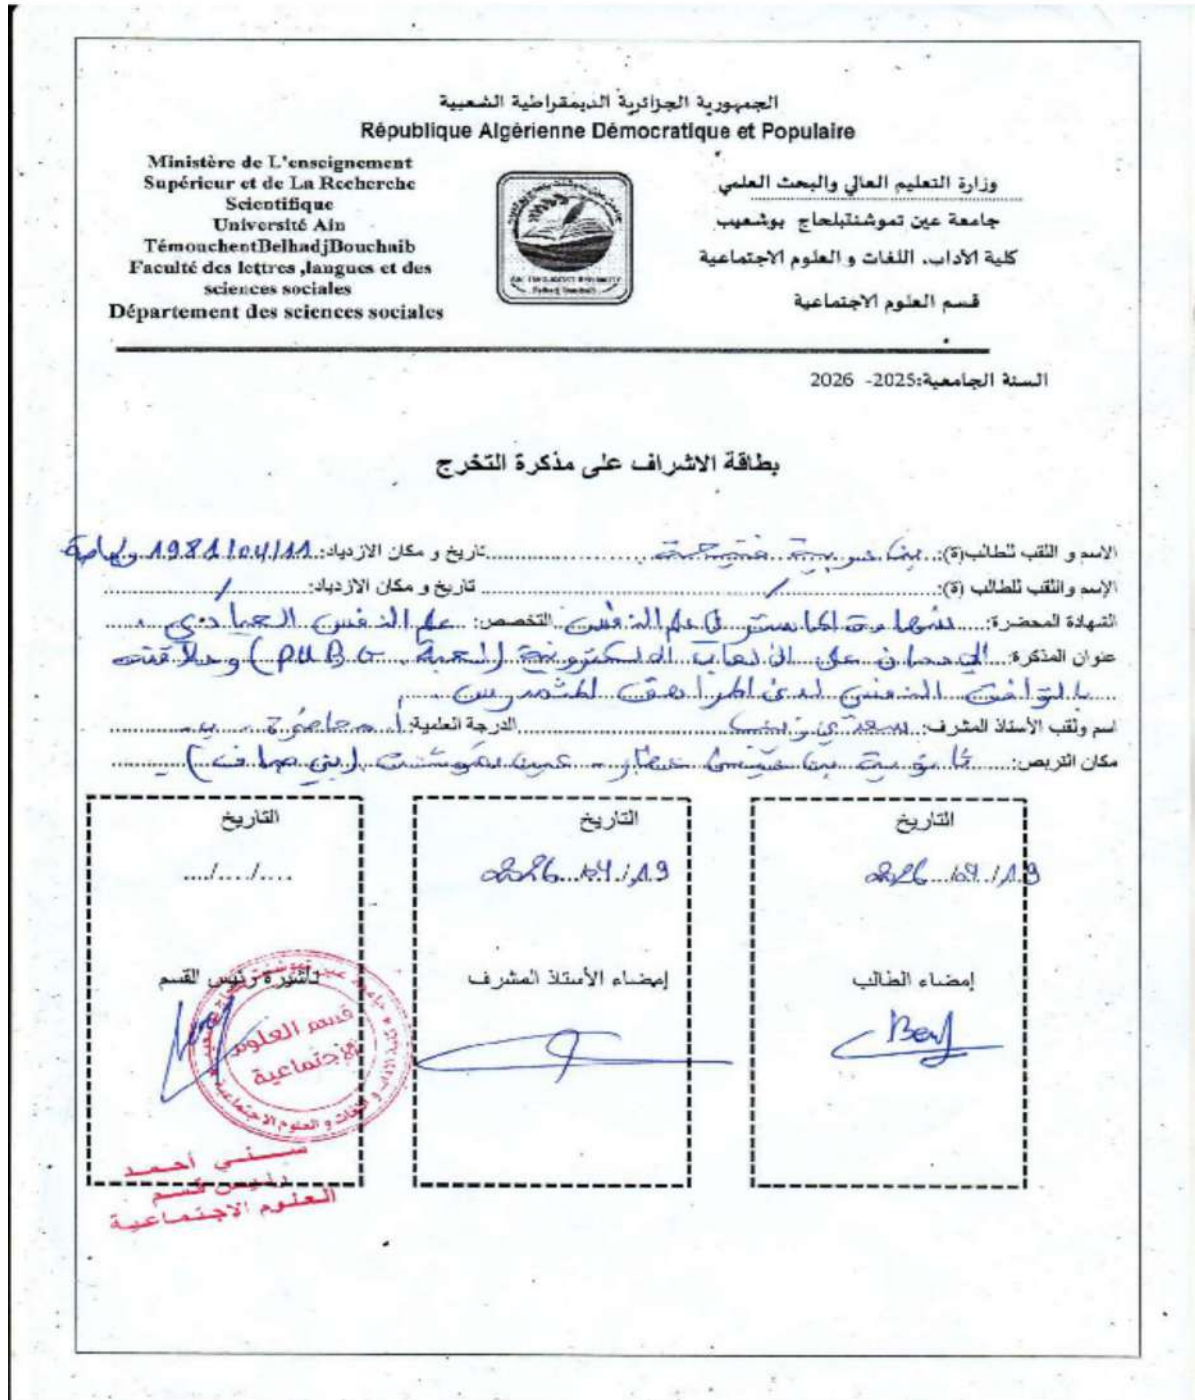 الجمهورية الجزائرية الديمقراطية الشعبية
République Algérienne Démocratique et Populaire
Ministère de L'enseignement
Supérieur et de La Recherche
Scientifique
Université Ain
TémouchentBelhadjBouchaib
Faculté des lettres ,langues et des
sciences sociales
Département des sciences sociales
وزارة التعليم العالي والبحث العلمي
جامعة عين تموشنتبلحاج بوشعيب
كلية الآداب، اللغات و العلوم الاجتماعية
قسم العلوم الاجتماعية
السنة الجامعية:2025- 2026
بطاقة الاشراف على مذكرة التخرج
الاسم و اللقب للطالب(ة): فتيحة تاريخ و مكان الازدياد: 1981/04/11
الإسم واللقب للطالب (ة): / تاريخ و مكان الازدياد: /
الشهادة المحضرة: شهادة الماستر في علم النفس التخصص: علم النفس العيادي
عنوان المذكرة: الإدمان على الألعاب الالكترونية (لعبة PUBG) وعلاقته
بالتوافق النفسي لدى المراهق المتمدرس
اسم ولقب الأستاذ المشرف: سعدي زينب الدرجة العلمية: أ. محاضرة ب
مكان التربص: ثانوية بن عيسى عين تموشنت (بني صاف)
التاريخ
2026/04/19
إمضاء الطالب
Benf
التاريخ
2026/04/19
إمضاء الأستاذ المشرف
التاريخ
..../..../....
تأشيرة رئيس القسم
قسم العلوم
الاجتماعية
سني أحمد
رئيس قسم
العلوم الاجتماعية